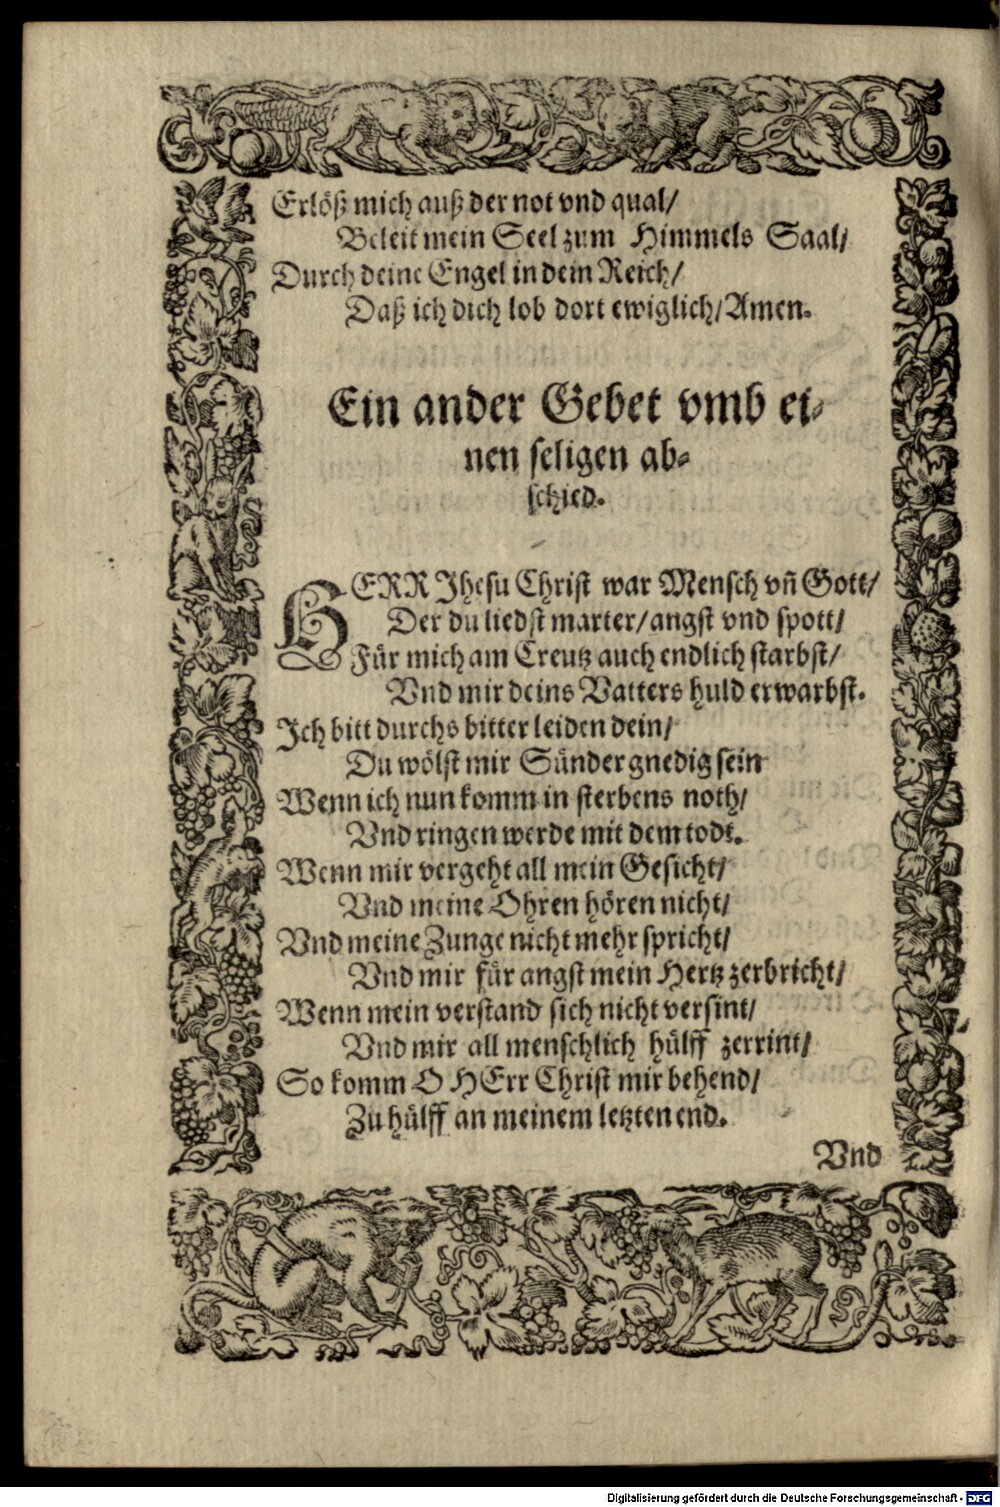 Erlöß mich auß der not vnd qual/
Beleit mein Seel zum Himmels Saal/
Durch deine Engel in dein Reich/
Daß ich dich lob dort ewiglich/ Amen.
Ein ander Gebet vmb ei-
nen seligen ab-
schied.
HERR Jhesu Christ war Mensch vñ Gott/
Der du liedst marter/ angst vnd spott/
Für mich am Creutz auch endlich starbst/
Vnd mir deins Vatters huld erwarbst.
Ich bitt durchs bitter leiden dein/
Du wölst mir Sünder gnedig sein
Wenn ich nun komm in sterbens noth/
Vnd ringen werde mit dem todt.
Wenn mir vergeht all mein Gesicht/
Vnd meine Ohren hören nicht/
Vnd meine Zunge nicht mehr spricht/
Vnd mir für angst mein Hertz zerbricht/
Wenn mein verstand sich nicht versint/
Vnd mir all menschlich hülff zerrint/
So komm O HErr Christ mir behend/
Zu hülff an meinem letzten end.
Vnd
Digitalisierung gefördert durch die Deutsche Forschungsgemeinschaft - DFG